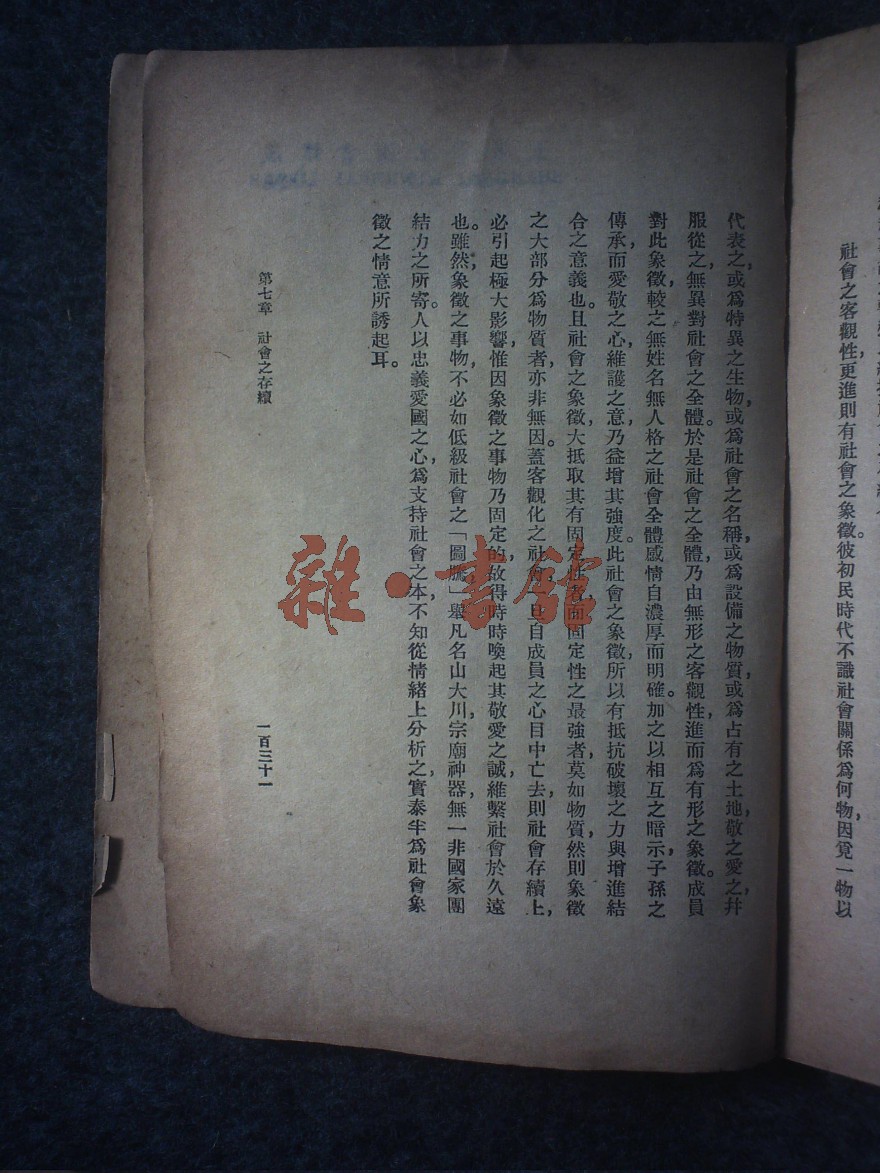 社會之客觀性，更進則有社會之象徵。彼初民時代不識社會關係爲何物，因覓一物以
代表之，或爲特異之生物，或爲社會之名稱，或爲設備之物質，或爲占有之土地，敬之愛之，幷
服從之，無異對社會之全體。於是社會之全體，乃由無形之客觀性，進而爲有形之象徵。成員
對此象徵，較之無姓名無人格之社會全體，感情自濃厚而明確。加之以相互之暗示，子孫之
傳承，而愛敬之心，維護之意，乃益增其強度。此社會之象徵，所以有抵抗破壞之力與增進結
合之意義也。且社會之象徵，大抵取其有固定性者，而固定性之最強者，莫如物質，然則象徵
之大部分爲物質者，亦非無因。蓋客觀化之社會，一旦自成員之心目中亡去，則社會存續上，
必引起極大影響，惟因象徵之事物乃固定的，故得時時喚起其敬愛之誠，維繫社會於久遠
也。雖然，象徵之事物，不必如低級社會之「圖騰」，舉凡名山大川，宗廟神器，無一非國家團
結力之所寄。人以忠義愛國之心，爲支持社會之本，不知從情緒上分析之，實泰半爲社會象
徵之情意所誘起耳。
第七章　社會之存續
一百三十一
雜·書館